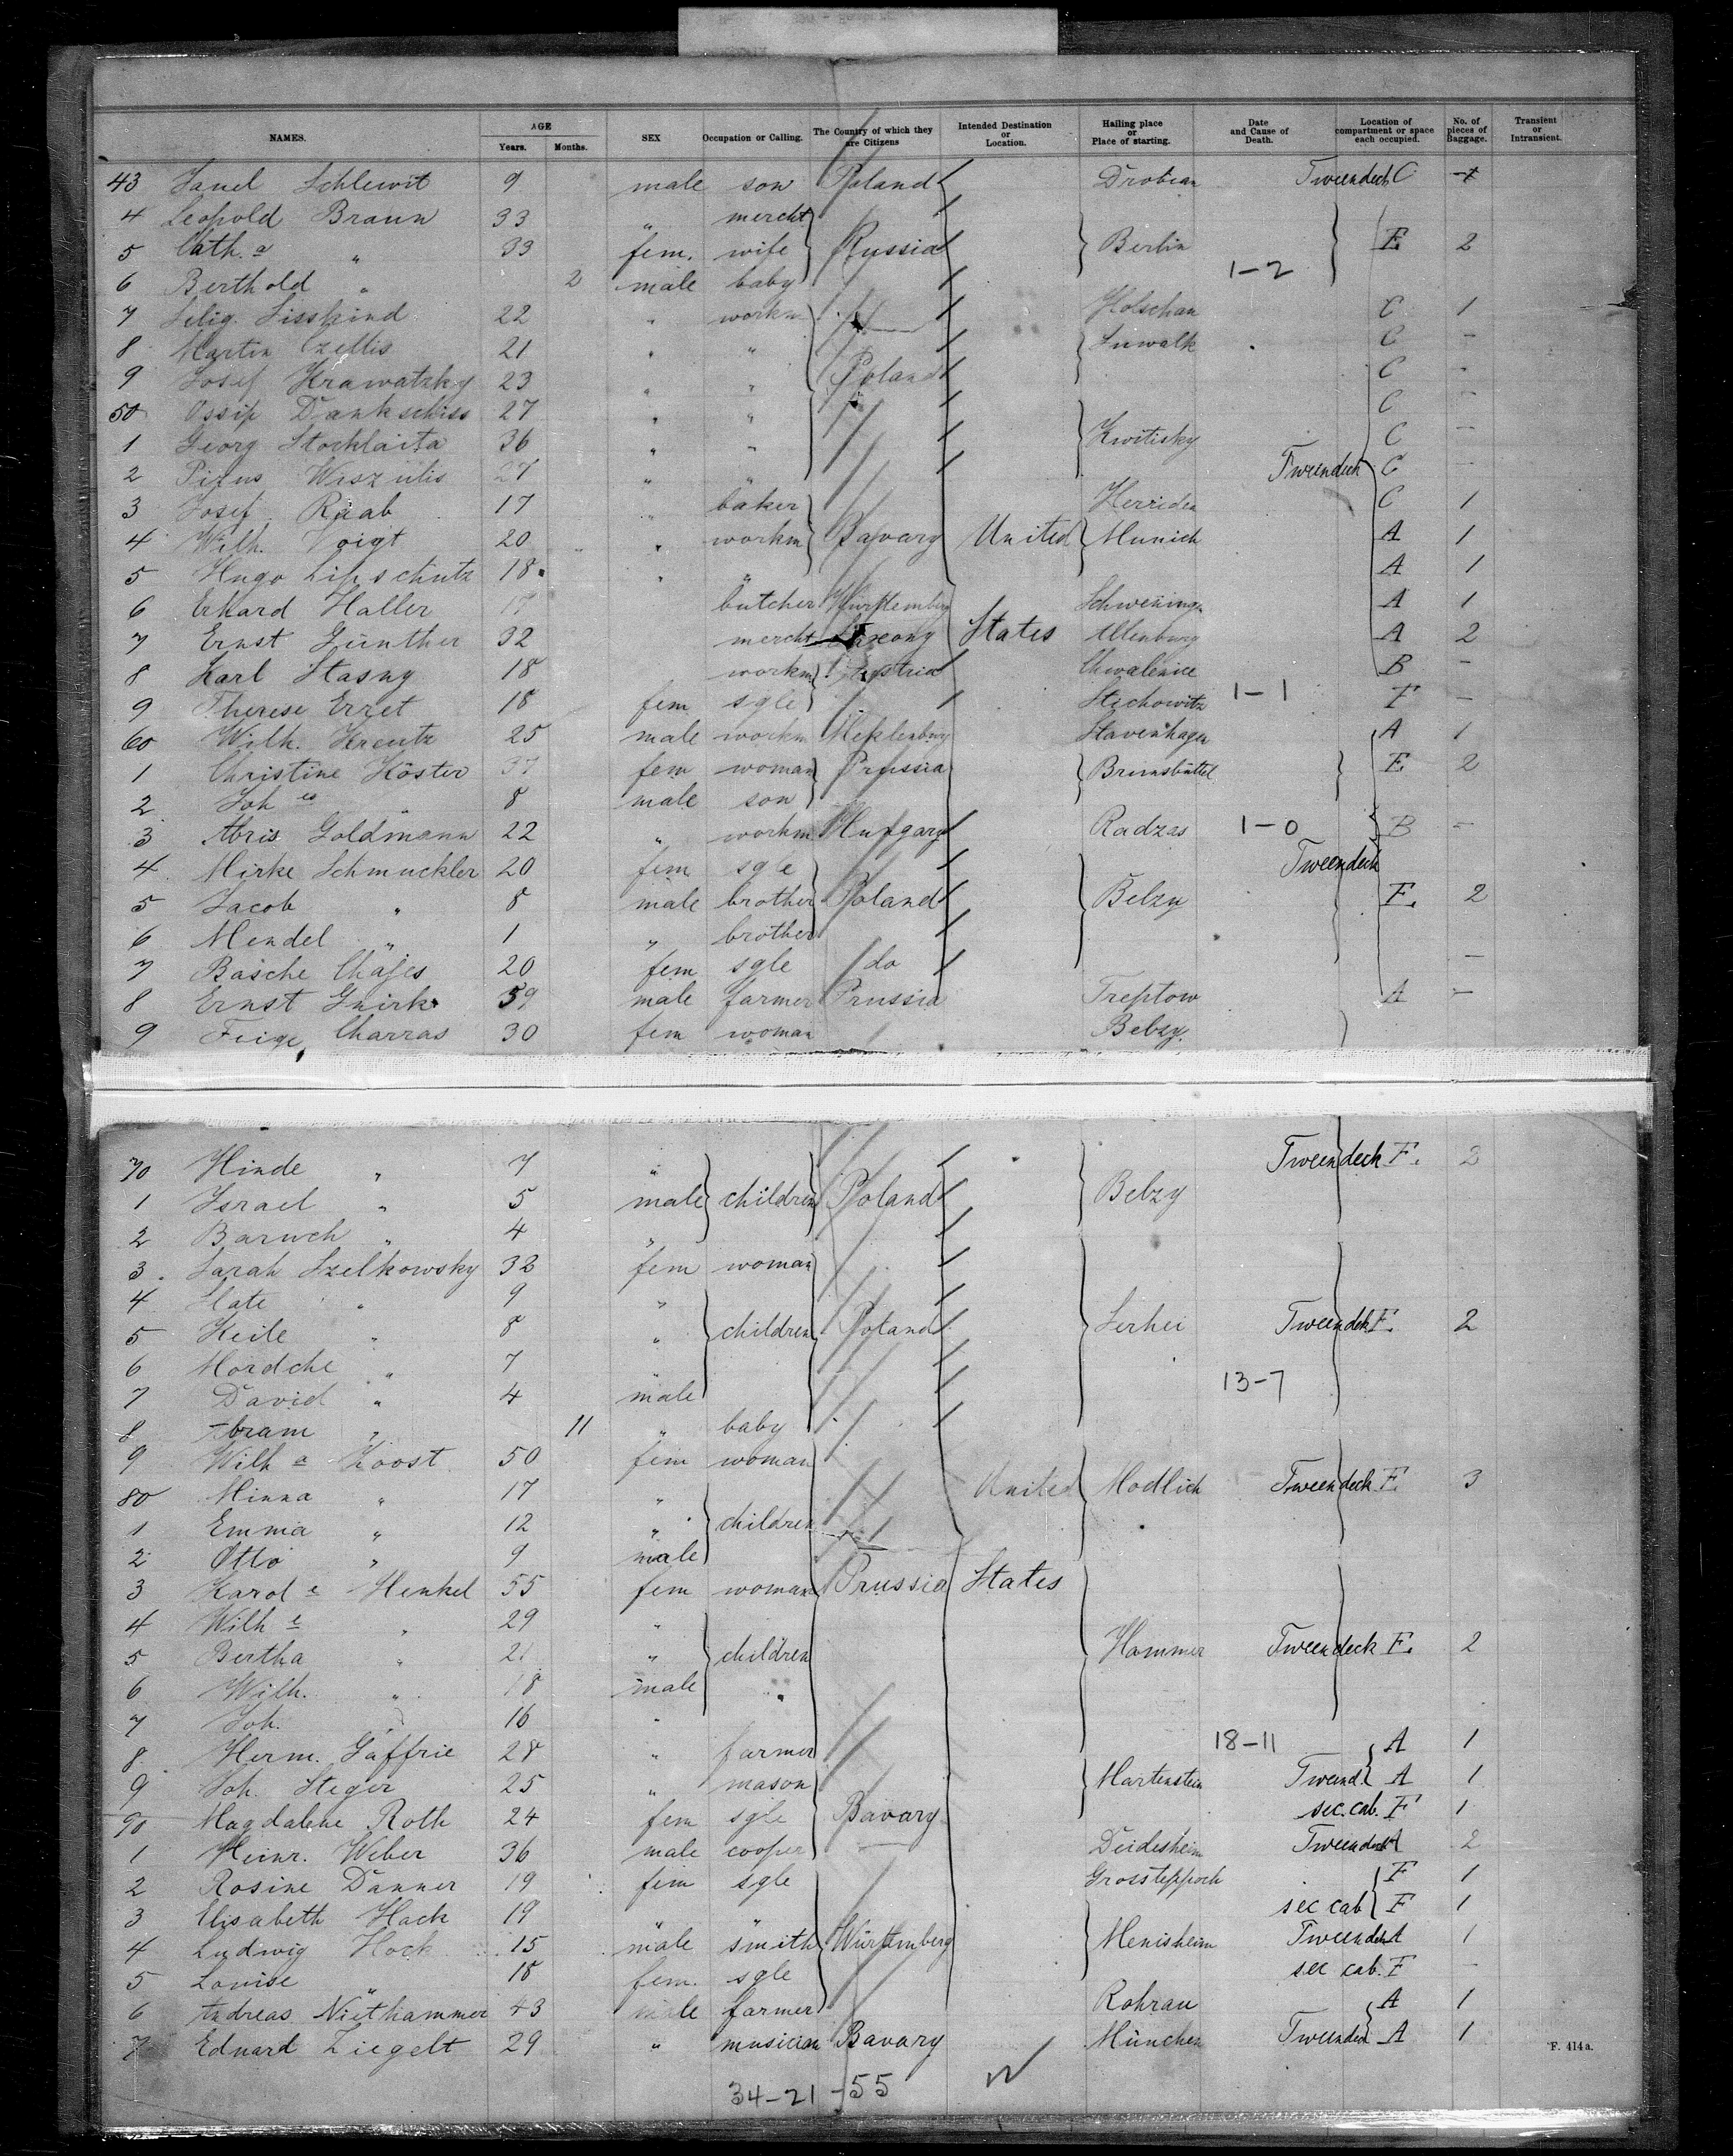 NAMES. AGE Years. Months. SEX Occupation or Calling. The Country of which they are Citizens Intended Destination or Location. Hailing place or Place of starting. Date and Cause of Death. Location of compartment or space each occupied. No. of pieces of Baggage. Transient or Intransient.
43 Schlewit 9 male son Poland Drobian Tweendeck C -
4 Leopold Braun 33 " mercht
5 Cath.a " 33 fem. wife Russia Berlin E 2
6 Berthold " 2 male baby 1-2
7 Selig Sisskind 22 " workm C 1
8 Martin Zellis 21 " " Suwalk C -
9 Josef Krawatzky 23 " " Poland C -
50 Ossip Dankschiss 27 " " C -
1 Georg Stocklaita 36 " " Kwitisky C -
2 Pius Wiszulis 27 " " Tweendeck C -
3 Josef Raab 17 " baker Herriden C 1
4 Wilh. Voigt 20 " workm Bavary United Munich A 1
5 Hugo Lipschutz 18 " " A 1
6 Erhard Haller 17 butcher Württemberg Schweningen A 1
7 Ernst Günther 32 mercht Saxony States Altenburg A 2
8 Karl Stasny 18 workm Austria Chwalenice B -
9 Therese Erzet 18 fem sgle Stechowitz 1-1 F -
60 Wilh. Kreutz 25 male workm Meklenburg Stavenhagen A 1
1 Christine Köster 37 fem woman Prussia Brunsbüttel E 2
2 Joh es " 8 male son
3 Abris Goldmann 22 " workm Hungary Radzas 1-0 B -
4 Mirke Schmuckler 20 fem sgle Tweendeck
5 Jacob " 8 male brother Poland Belzy F. 2
6 Mendel " 1 " brother
7 Basche Chajes 20 fem sgle do -
8 Ernst Gnirk 59 male farmer Prussia Treptow A -
9 Feige Charras 30 fem woman Belzy.
70 Hinde " 7 " Tweendeck F. 2
1 Israel " 5 male children Poland Belzy
2 Baruch " 4 "
3. Sarah Szelkowsky 32 fem woman
4 Slate " 9 "
5 Keile " 8 " children Poland Serhei Tweendek F. 2
6 Mordche " 7
7 David " 4 male 13-7
8 Abram " 11 " baby
9 Wilh a Zoost 50 fem woman
80 Minna " 17 " United Modlich Tweendeck F. 3
1 Emma " 12 " children
2 Otto " 9 male
3 Karol e Henkel 55 fem woman Prussia States
4 Wilh e " 29 "
5 Bertha " 21 " children Hammer Tweendeck F. 2
6 Wilh. " 18 male "
7 Joh. " 16 "
8. Herm. Gaffrie 28 " farmer 18-11 A 1
9 Joh. Steger 25 " mason Martenstein Tweend. A 1
90 Magdalene Roth 24 fem sgle Bavary sec. cab. F 1
1 Heinr. Weber 36 male cooper Deidesheim Tweendek A 2
2 Rosine Danner 19 fem sgle Grossteppach F 1
3 Elisabeth Hack 19 sec cab F 1
4 Ludwig Hock 15 male smith Württemberg Menisheim Tweendek A 1
5 Louise " 18 fem. sgle sec cab. F -
6 Andreas Niethammer 43 male farmer Rohrau A 1
7 Eduard Ziegelt 29 " musician Bavary München Tweendek A 1
F. 414a.
34-21-55